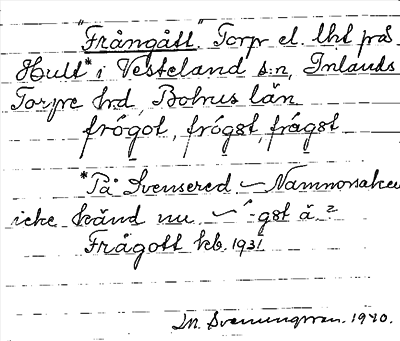 "Frångått". Torp el. lht på
Hult* i Västerland s:n, Inlands
Torpe hrd, Bohus län
frógot, frógst, frågst
*På Svensered ~ Namnorsaken
icke känd nu. ~ ´-gst ä.?
Frågott kb. 1931
1940.